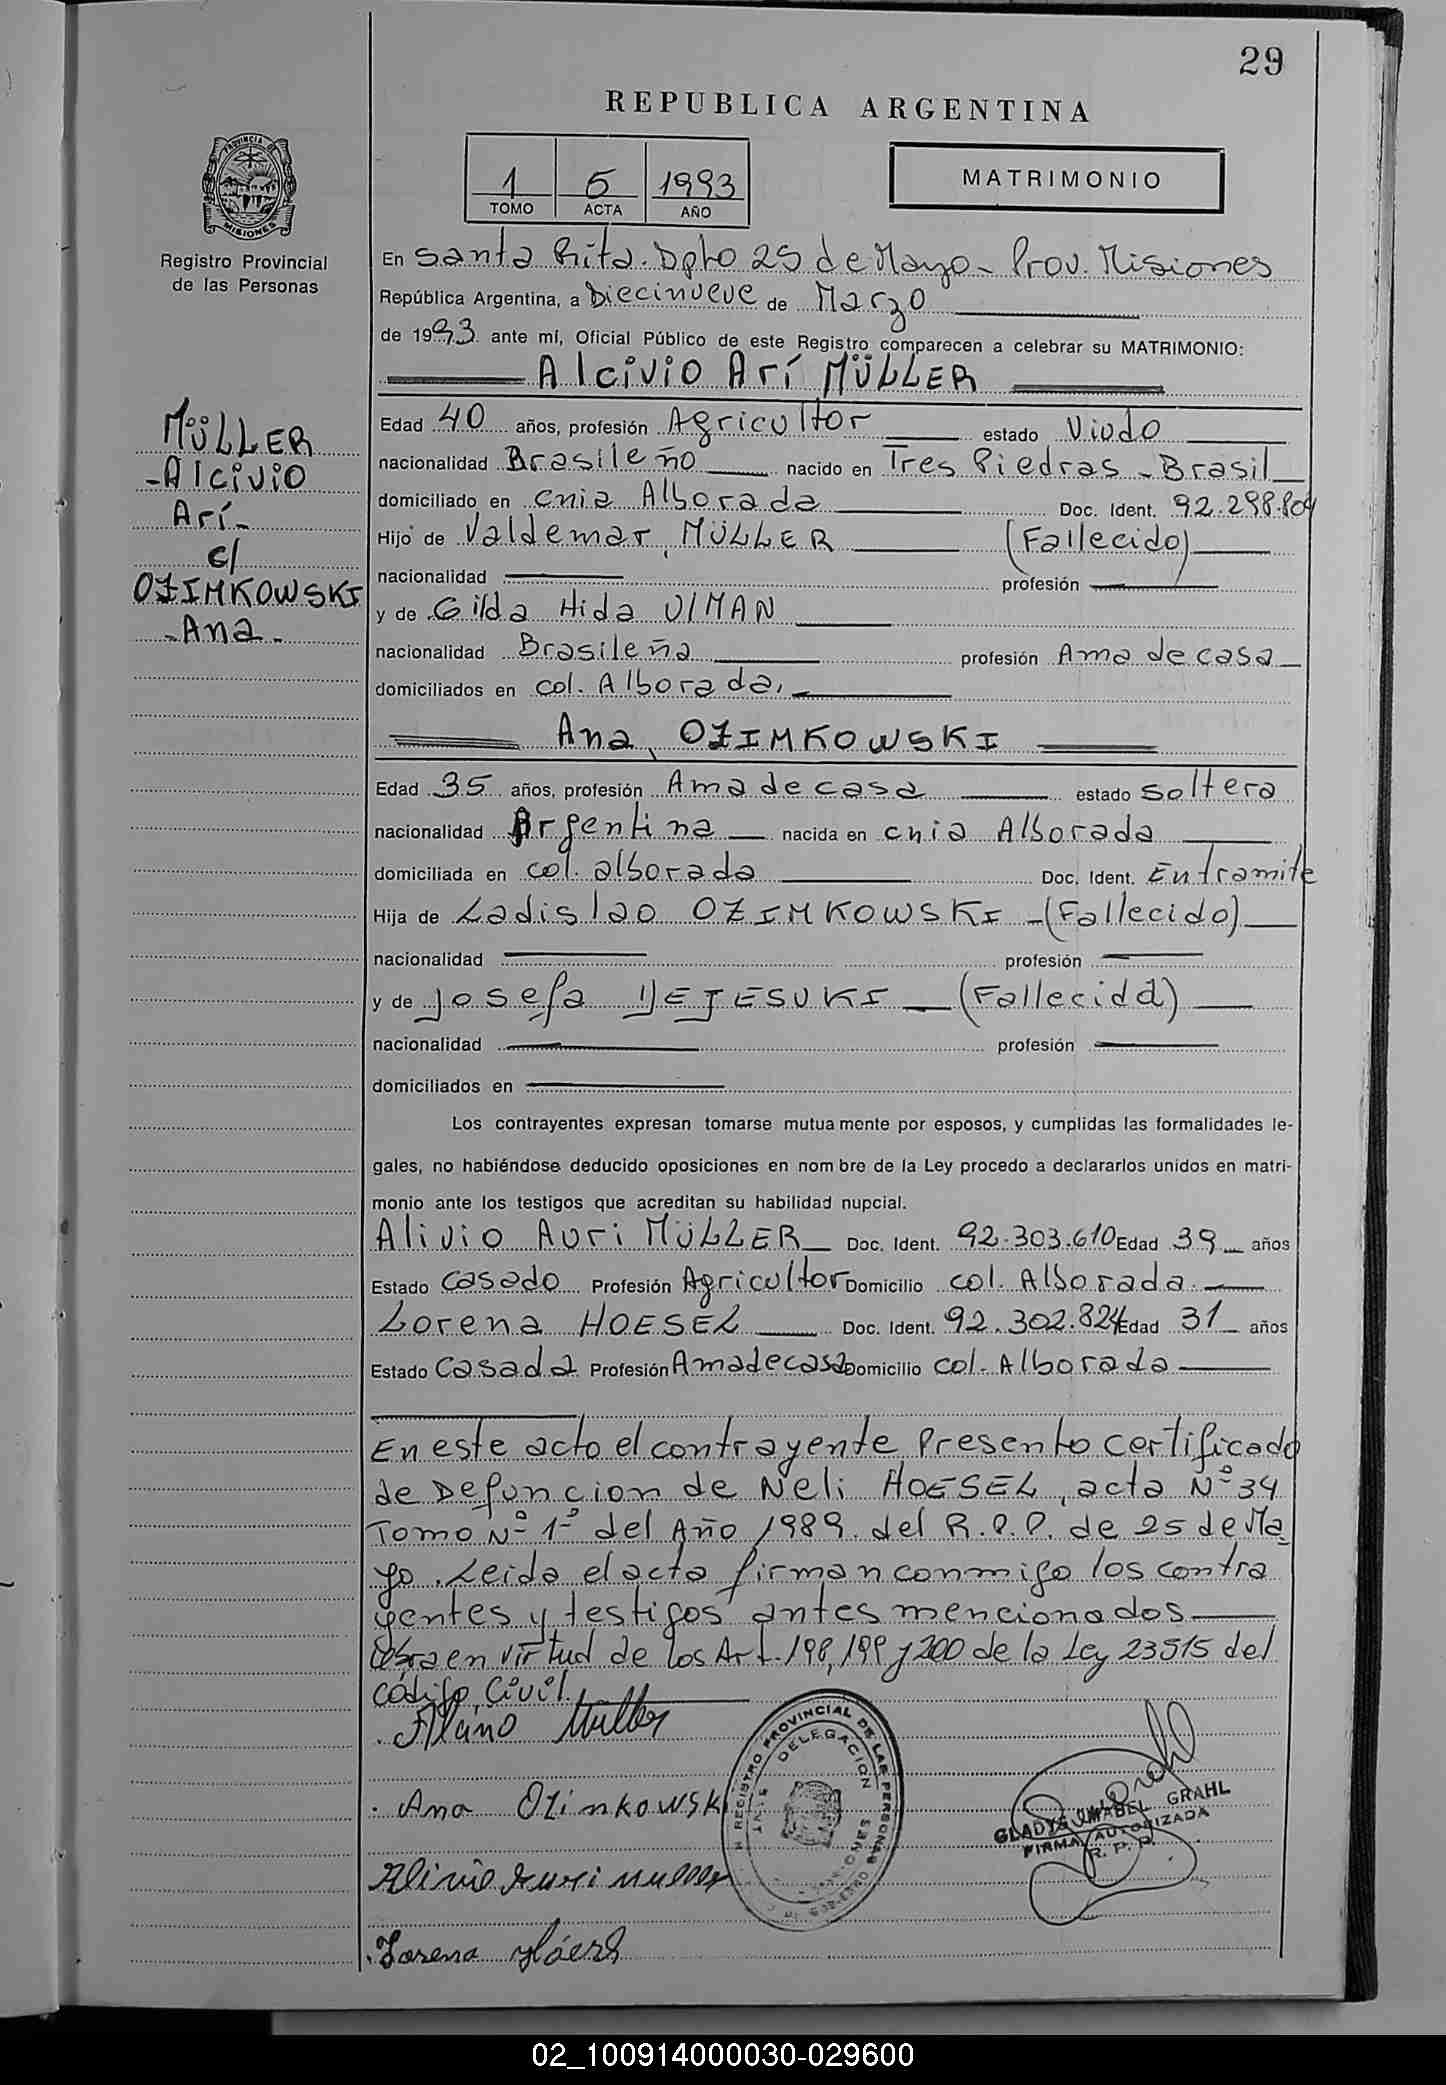 29
REPUBLICA ARGENTINA
1 5 1993
TOMO ACTA AÑO
MATRIMONIO
PROVINCIA DE MISIONES
Registro Provincial
de las Personas
En Santa Rita. Dpto 25 de Mayo - Prov. Misiones
República Argentina, a Diecinueve de Marzo
de 1993 ante mí, Oficial Público de este Registro comparecen a celebrar su MATRIMONIO:
Alcivio Arí MÜLLER
MÜLLER
-Alcivio
Arí-
c/
OZIMKOWSKI
-Ana-
Edad 40 años, profesión Agricultor estado Viudo
nacionalidad Brasileño nacido en Tres Piedras - Brasil
domiciliado en cnia Alborada Doc. Ident. 92.298.804
Hijo de Valdemar, MÜLLER (Fallecido)
nacionalidad profesión
y de Gilda Hida UlMAN
nacionalidad Brasileña profesión Ama de casa
domiciliados en col. Alborada,
Ana, OZIMKOWSKI
Edad 35 años, profesión Ama de casa estado soltera
nacionalidad Argentina nacida en cnia Alborada
domiciliada en col. alborada Doc. Ident. En tramite
Hija de Ladislao OZIMKOWSKI - (Fallecido)
nacionalidad profesión
y de Josefa (Fallecida)
nacionalidad profesión
domiciliados en
Los contrayentes expresan tomarse mutuamente por esposos, y cumplidas las formalidades le-
gales, no habiéndose deducido oposiciones en nombre de la Ley procedo a declararlos unidos en matri-
monio ante los testigos que acreditan su habilidad nupcial.
Alivio Auri MÜLLER Doc. Ident. 92.303.610 Edad 39 años
Estado casado Profesión Agricultor Domicilio col. Alborada.
Lorena HOESEL Doc. Ident. 92.302.824 Edad 31 años
Estado casada Profesión Ama de casa Domicilio col. Alborada
En este acto el contrayente Presento certificado
de Defuncion de Neli HOESEL, acta Nº 34
Tomo Nº 1º del Año 1989. del R.P.P. de 25 de Ma
yo. Leida el acta firman conmigo los contra
yentes y testigos antes mencionados
en virtud de los Art. 198, 199 y 200 de la Ley 23515 del
código Civil.
Muller
Ana Ozimkowski
REGISTRO PROVINCIAL DE LAS PERSONAS
DELEGACION
GLADYS MABEL GRAHL
FIRMA AUTORIZADA
R. P. P.
Alivio Auri Muller
Lorena
02_100914000030-029600